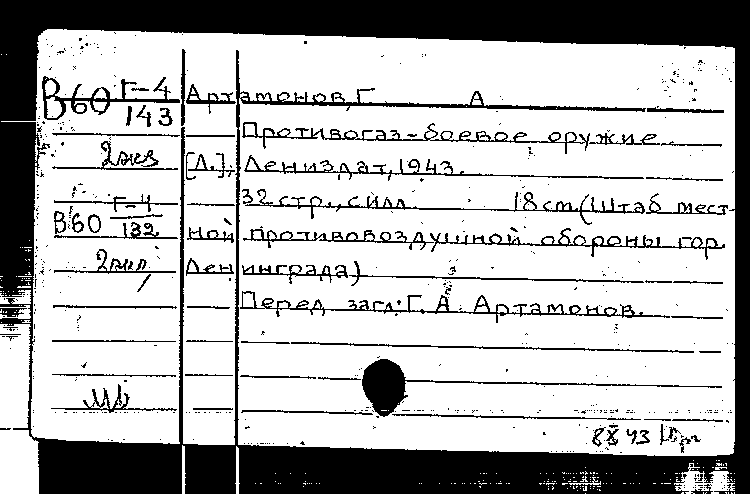 В60 Г-4/143 Артамонов, Г. А.
Противогаз-боевое оружие.
2 экз [Л.], Лениздат, 1943.
32 стр., с илл. 18 см. (Штаб мест-
В60 Г-4/132 ной противовоздушной обороны гор.
Ленинграда)
Перед загл: Г. А. Артамонов.